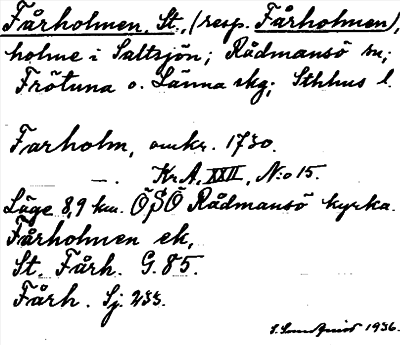 Fårholmen, St., (resp. Fårholmen),
holme i Saltsjön; Rådmansö sn;
Frötuna o. Länna skg; Sthlms l.
Farholm, omkr. 1730.
—. Kr.A. XXII, N:o 15.
Läge 8,9 km. ÖSÖ Rådmansö kyrka.
Fårholmen ek,
St. Fårh. G. 85.
Fårh. Sj. 233.
1936.